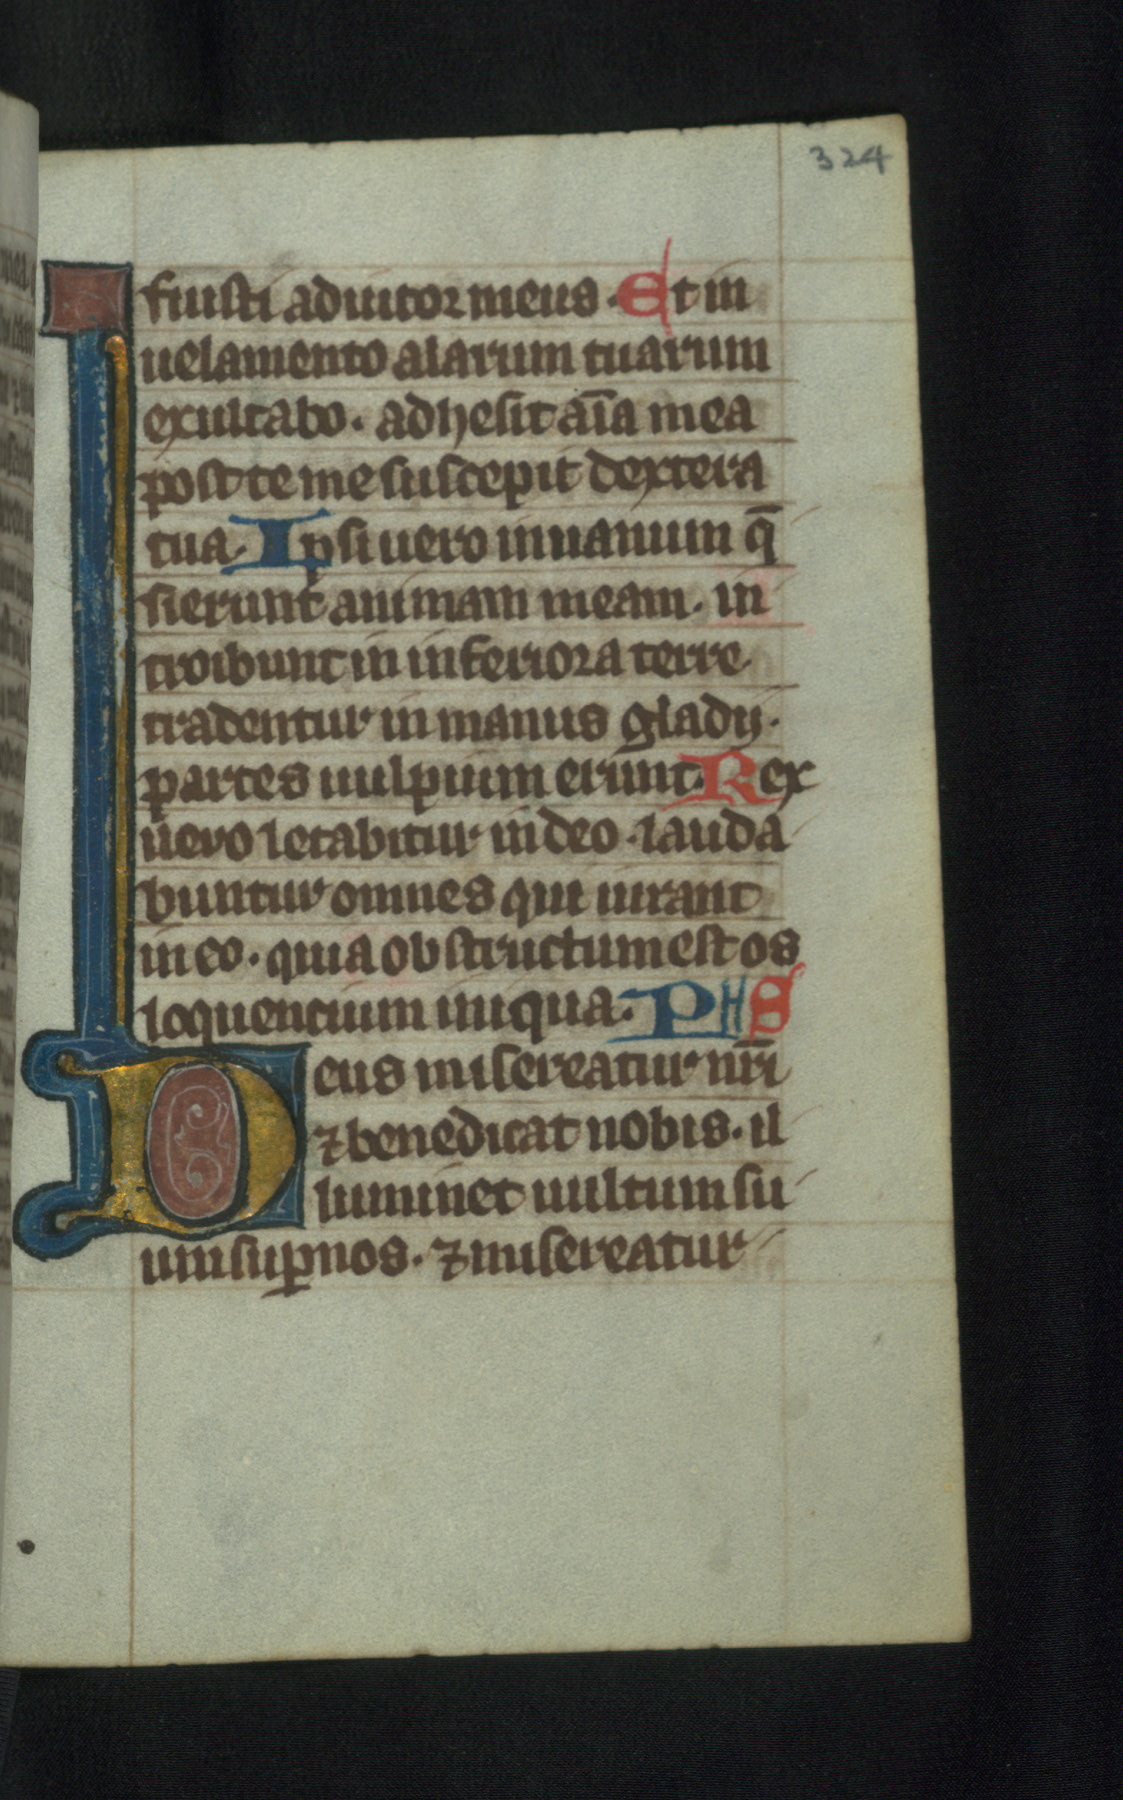 324
fuisti adiutor meus. Et in
uelamento alarum tuarum
exultabo. adhesit aīa mea
post te me suscepit dextera
tua. Ipsi uero inuanum q̄
sierunt animam meam. in
troibunt in inferiora terre
tradentur in manus gladij.
partes uulpium erunt. Rex
uero letabitur in deo. lauda
buntur omnes qui iurant
in eo. quia obstructum est os
loquencium iniqua. PHS
Deus misereatur nr̄i
⁊ benedicat nobis. il
luminet uultum su
um suꝑ nos. ⁊ misereatur